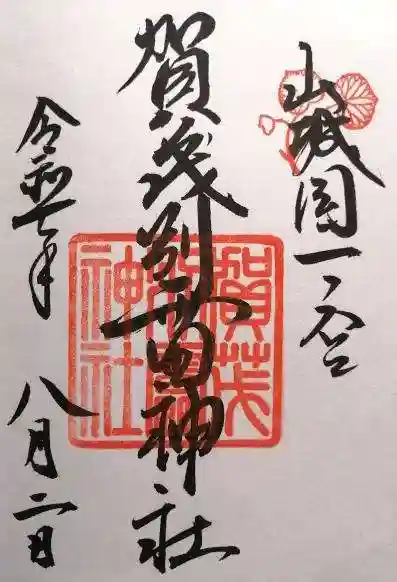 山城国一ノ宮
賀茂別雷神社
賀茂別雷神社
令和七年
八月二日